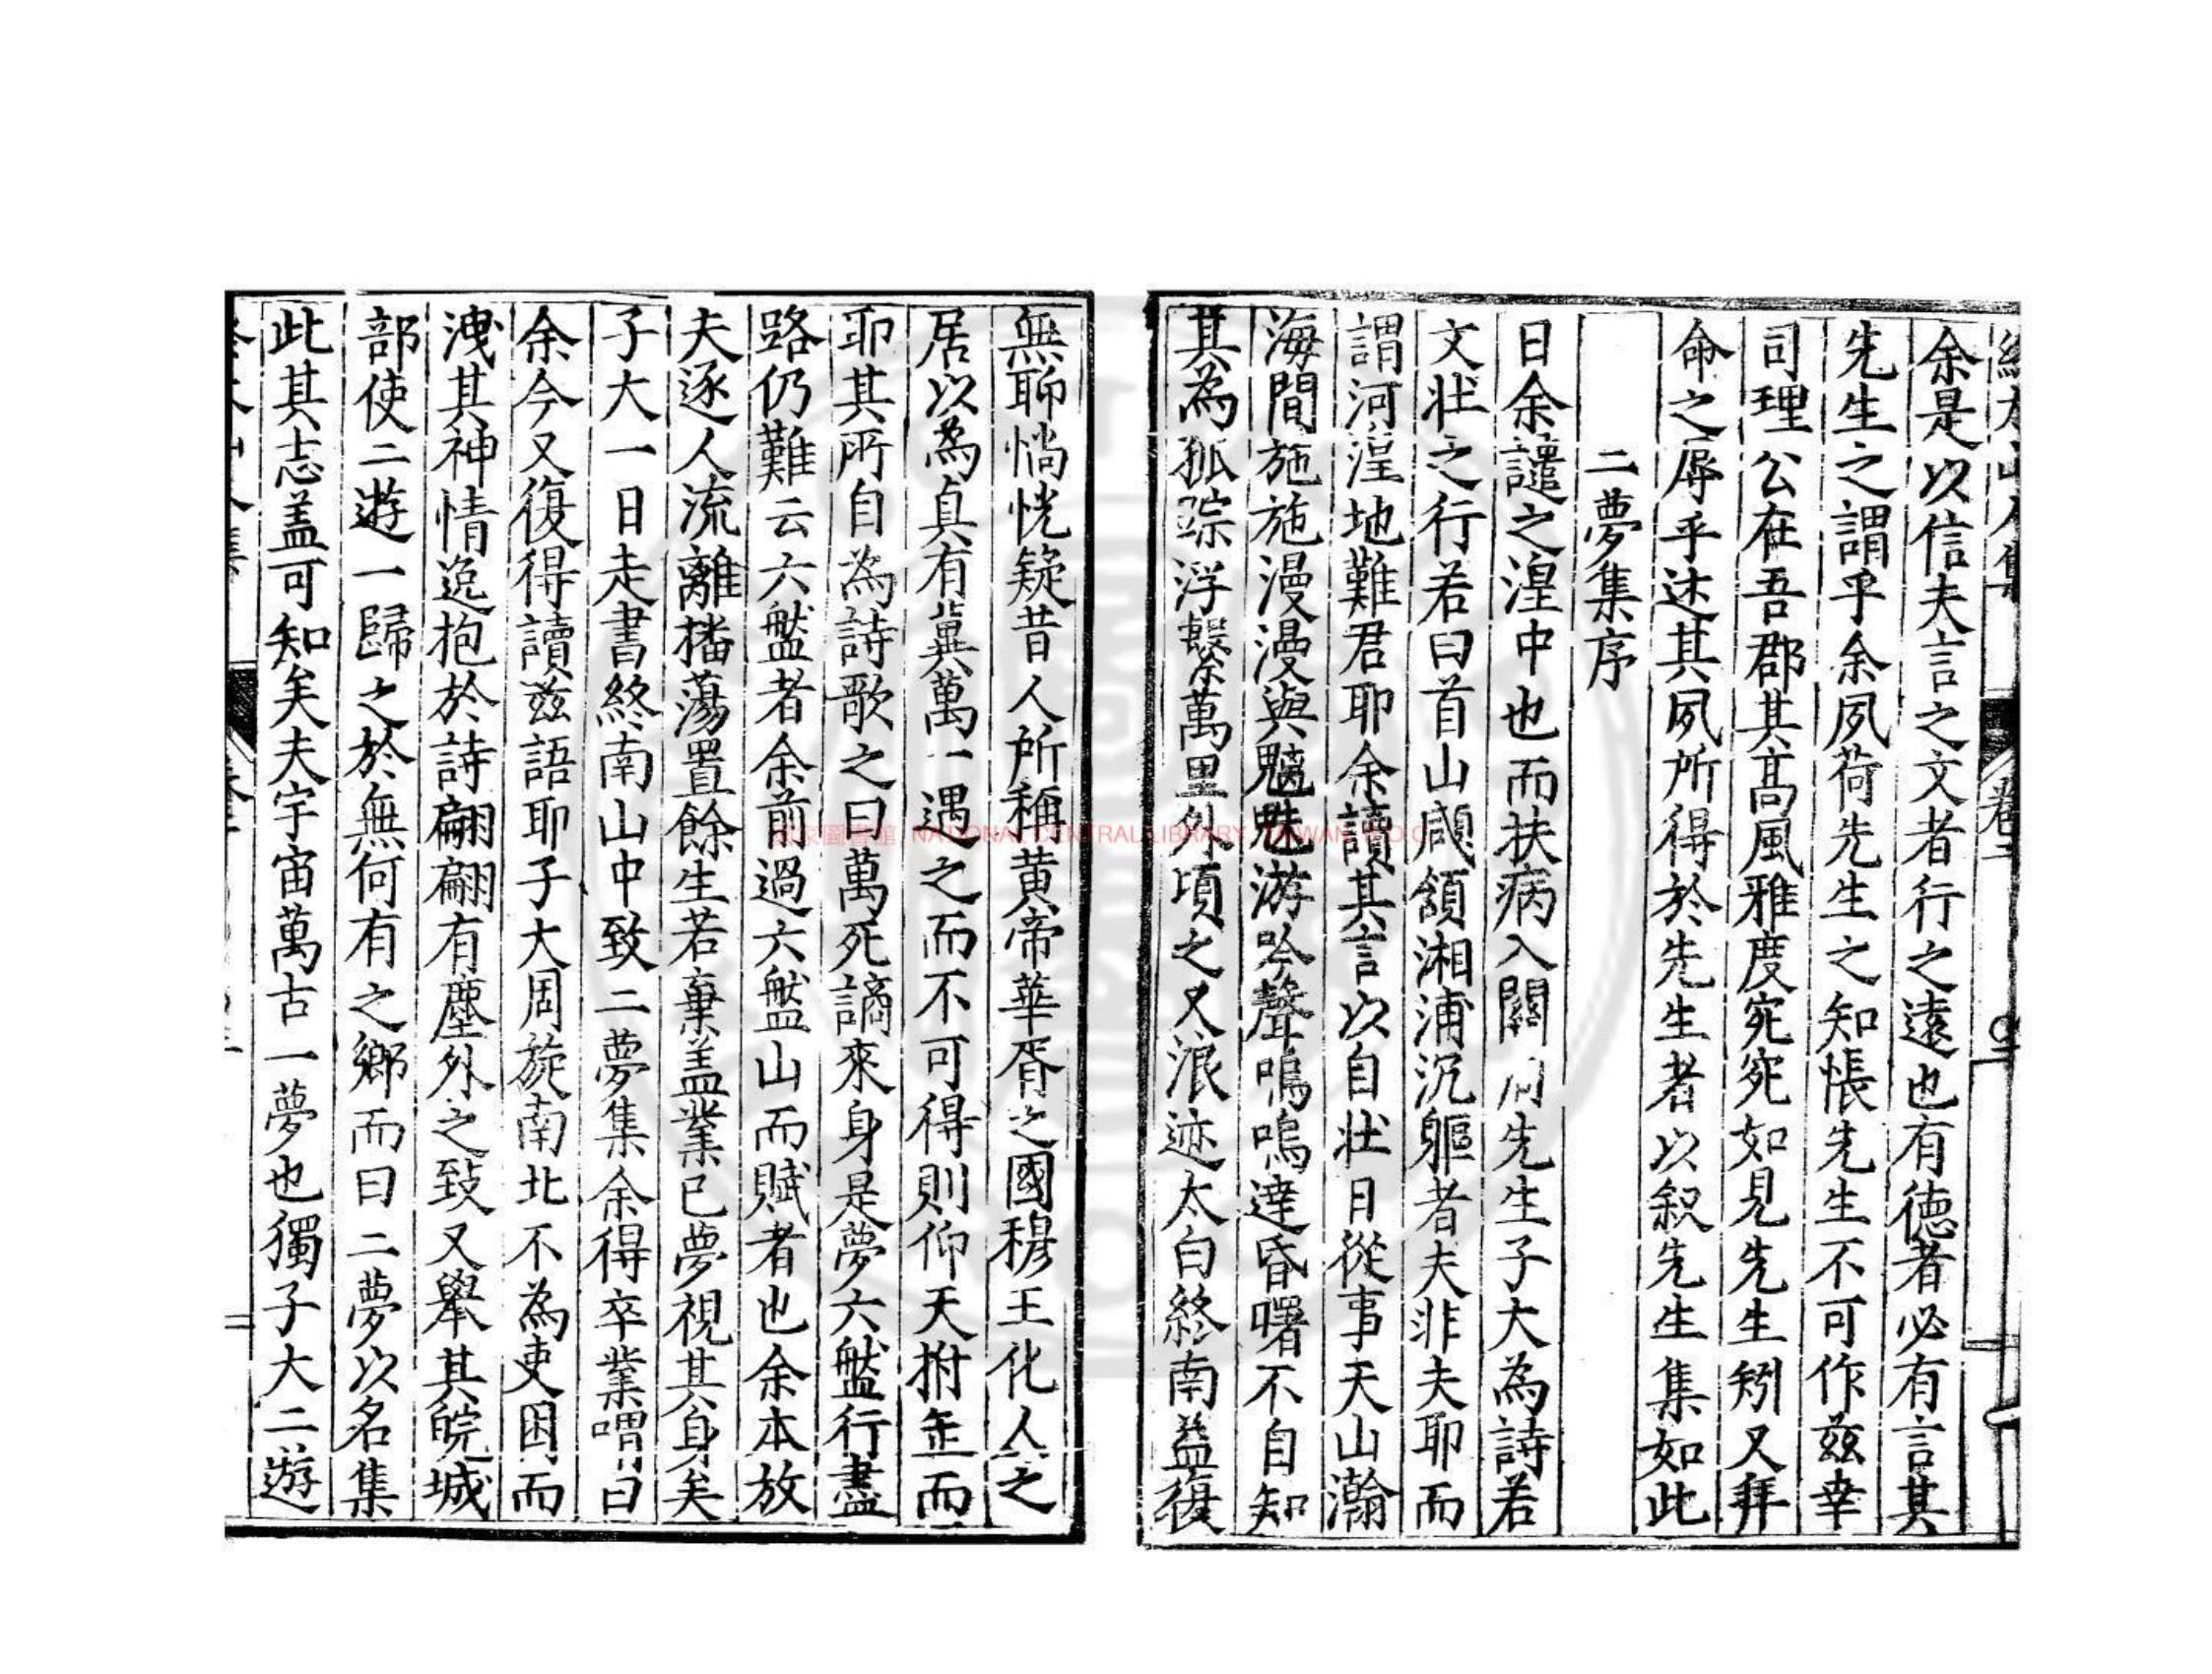 余是以信夫言之文者行之遠也有德者必有言其
先生之謂乎余夙荷先生之知悵先生不可作茲幸
司理公在吾郡其髙風雅度宛宛如見先生矧又拜
命之辱乎述其夙所得於先生者以叙先生集如此
二夢集序
日余譴之湟中也而扶病入關 先生子大為詩若
文狀之行若曰首山顑頷湘浦沉軀者夫非夫耶而
謂河湟地難君耶余讀其言以自壯日從事天山瀚
海間施施漫漫與魑魅游吟聲嗚嗚達昏曙不自知
其為孤踪浮繫萬里外頃之又浪迹太白終南益復
無聊惝恍疑昔人所稱黄帝華胥之國穆王化人之
居以為真有冀萬一遇之而不可得則仰天拊缶而
耶其所自為詩歌之曰萬死謫來身是夢六盤行盡
路仍難云六盤者余前過六盤山而賦者也余本放
夫逐人流離播蕩置餘生若棄盖業已夢視其身矣
子大一日走書終南山中致二夢集余得卒業喟曰
余今又復得讀兹語耶子大周旋南北不為吏困而
洩其神情逸抱於詩翩翩有塵外之致又舉其皖城
部使二遊一歸之於無何有之鄉而曰二夢以名集
此其志盖可知矣夫宇宙萬古一夢也獨子大二遊
國家圖書館 NATIONAL CENTRAL LIBRARY, TAIWAN, R.O.C.